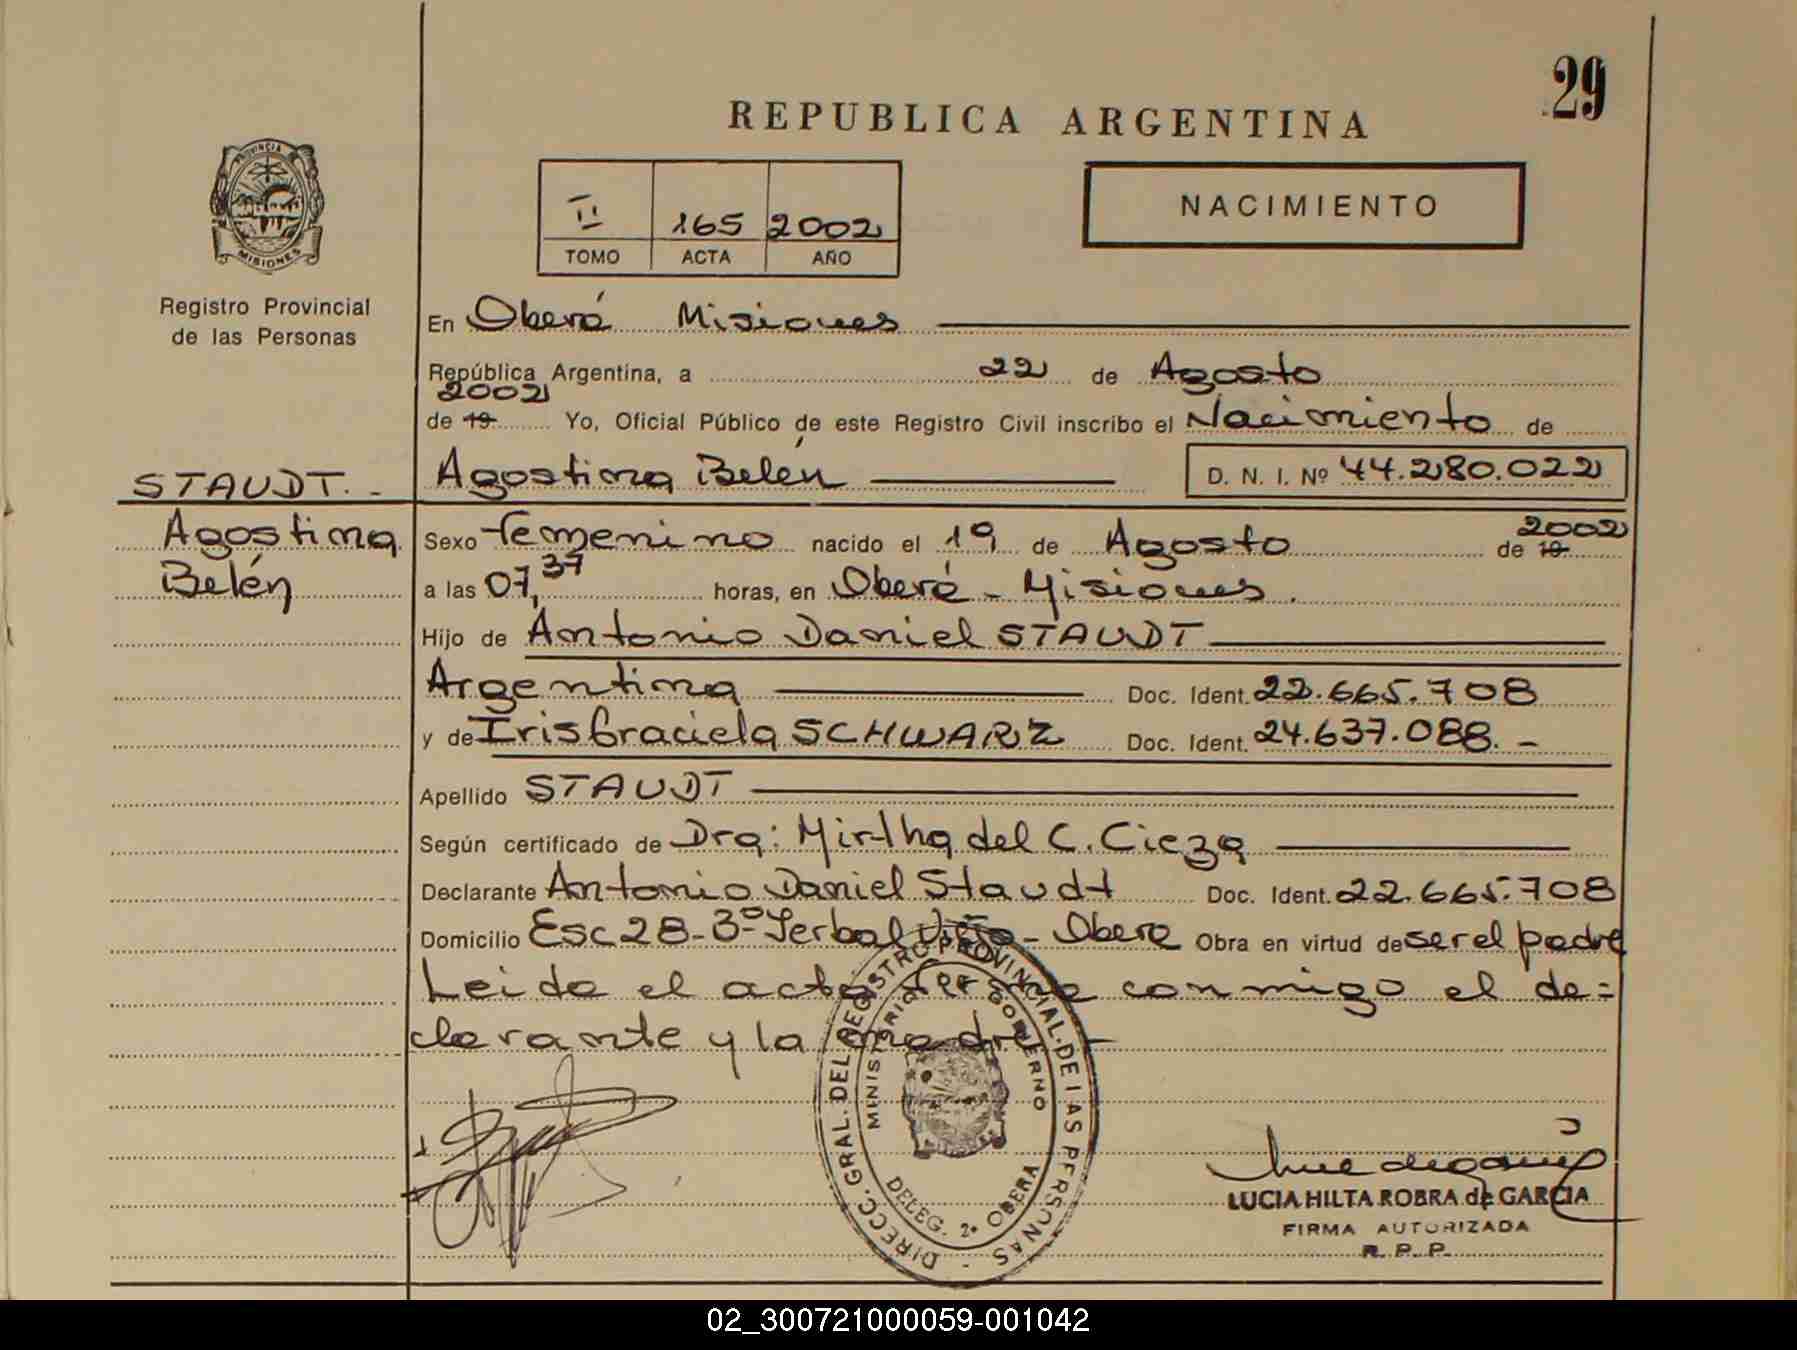 29
REPUBLICA ARGENTINA
PROVINCIA DE
MISIONES
Registro Provincial
de las Personas
II 165 2002
TOMO ACTA AÑO
NACIMIENTO
En Oberá Misiones
República Argentina, a 22 de Agosto
2002
de 19 Yo, Oficial Público de este Registro Civil inscribo el Nacimiento de
STAUDT.-
Agostina Belén D. N. I. Nº 44.280.022
Agostina
Belén
Sexo femenino nacido el 19 de Agosto de 19 2002
a las 07,37 horas, en Oberá - Misiones.
Hijo de Antonio Daniel STAUDT
Argentina Doc. Ident. 22.665.708
y de Iris Graciela SCHWARZ Doc. Ident. 24.637.088.-
Apellido STAUDT
Según certificado de Dra: Mirtha del C. Cieza
Declarante Antonio Daniel Staudt Doc. Ident. 22.665.708
Domicilio Esc 28-3º Yerbal Viejo - Obera Obra en virtud de ser el padre
Leida el acta firma conmigo el de=
clarante y la madre-
DIRECC. GRAL. DEL REGISTRO PROVINCIAL DE LAS PERSONAS -
MINISTERIO DE GOBIERNO
DELEG. 2ª OBERA
LUCIA HILTA ROBRA de GARCIA
FIRMA AUTORIZADA
R. P. P.
02_300721000059-001042